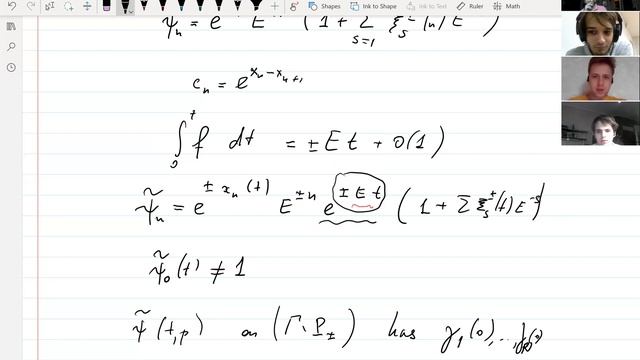 Shapes Ink to Shape Ink to Math Ruler Math
ψ_n = e E (1 + Σ_{s=1} ξ_s^±(n) E )
c_n = e^{x_n - x_{n+1}}
∫_0^t f dt = ±Et + O(1)
ψ̃_n = e^{± x_n(t)} E^{±n} e^{±Et} (1 + Σ ξ_s^±(t) E^{-s})
ψ̃_0(t) ≠ 1
ψ̃(t,p) on (Γ∖P_±) has γ_1(0), ...,